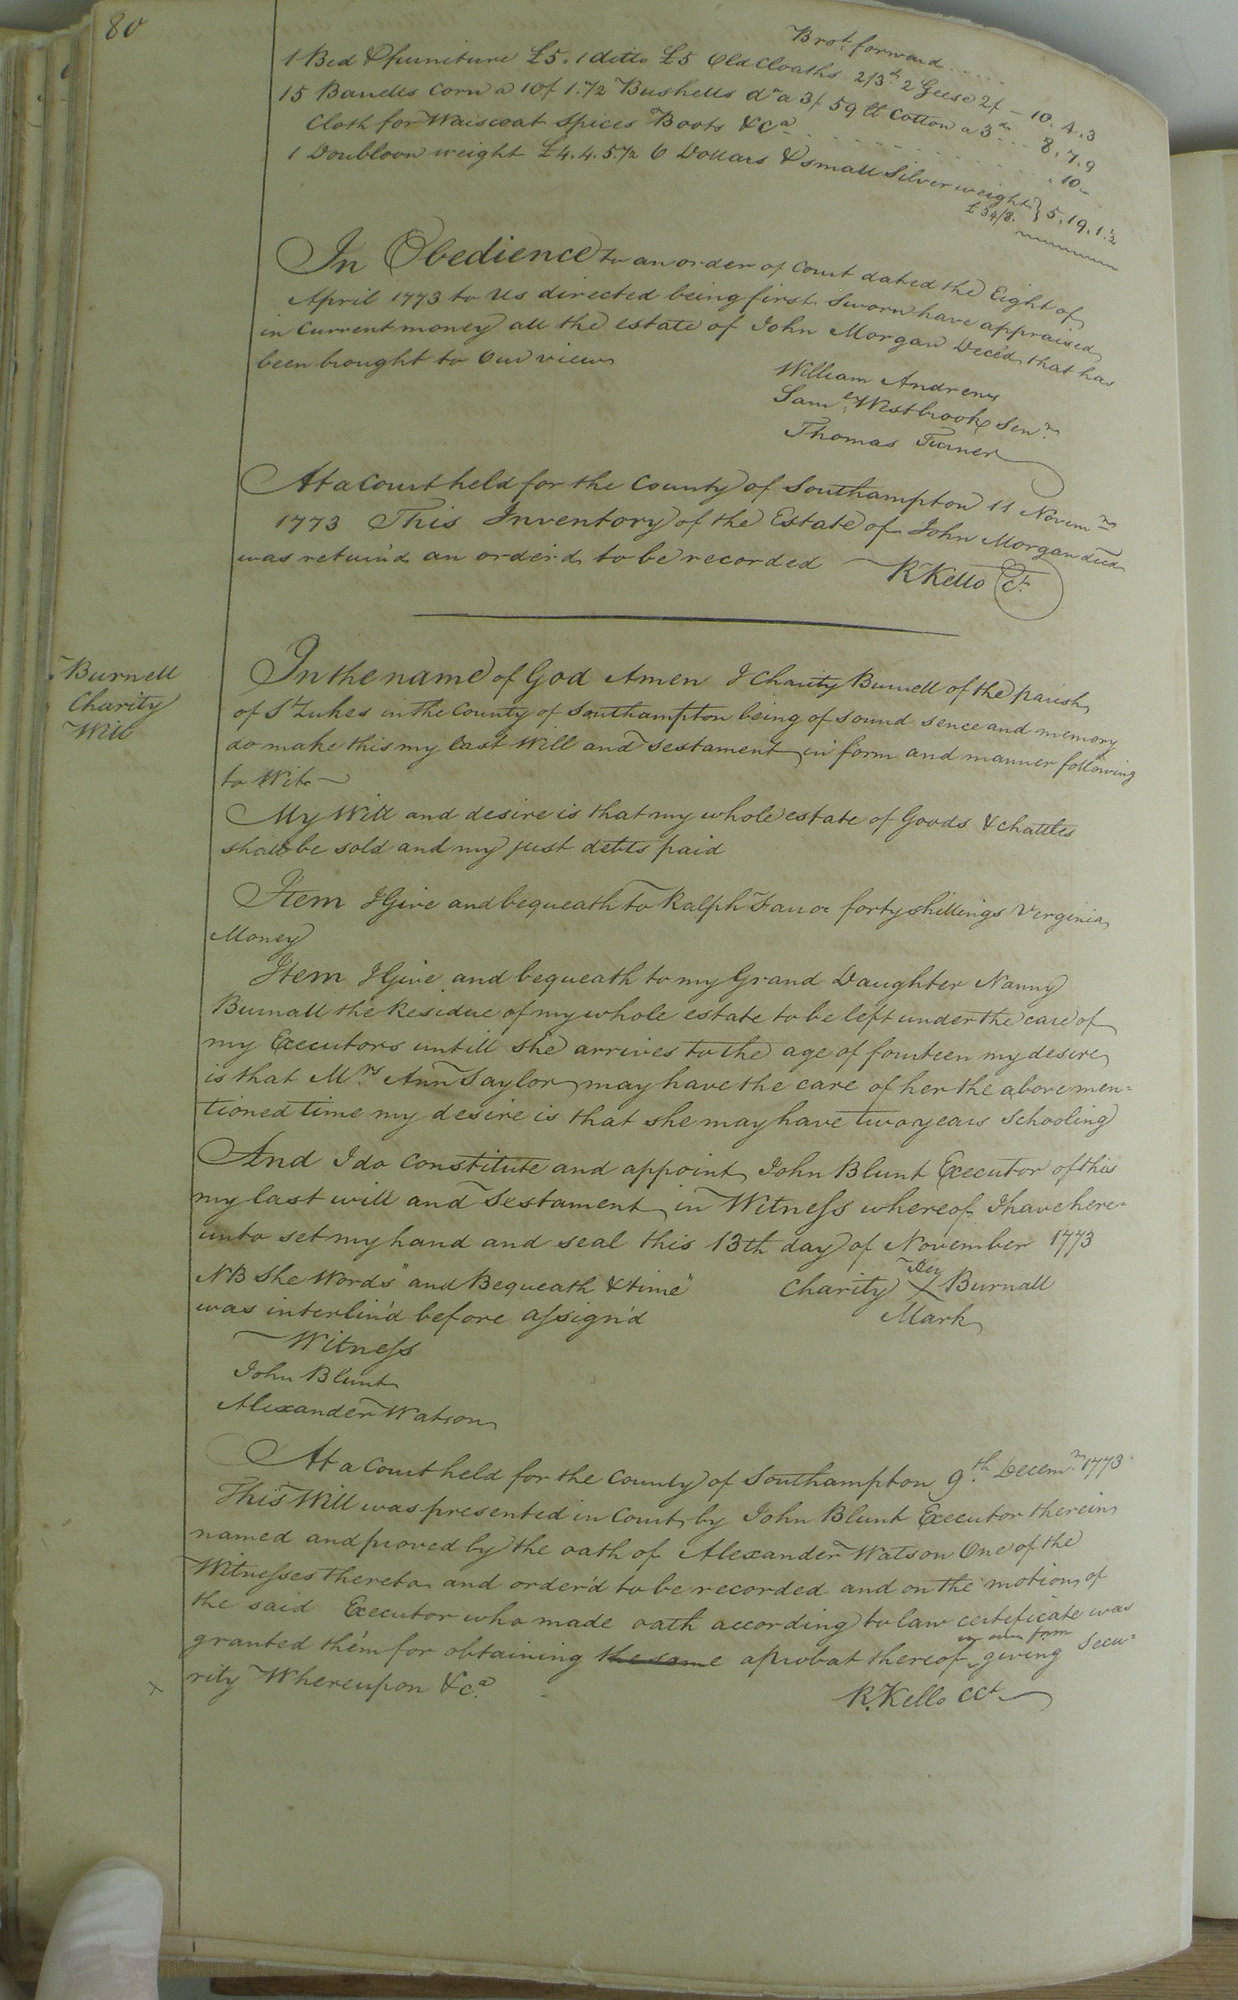 80
Bro.t forward
1 Bed & furniture £5. 1 ditto £5 Old Cloaths 2/3.d 2 Geese 2/ — 10 . 4 . 3
15 Barells Corn a 10/ 1.1/2 Bushells d.o a 3/ 59 lb Cotton a 3.d 8 . 7 . 9
Cloth for Waiscoat Spices Boots &c.a . 10 –
1 Doubloon weight £4.4.5.1/2 6 Dollars & small Silver weight } 5 . 19 . 1.1/2
£ 34/8.
In Obedience to an order of Court dated the Eight of
April 1773 to Us directed being first Sworn have appraised
in Current money all the estate of John Morgan Deced. that has
been brought to Our view
William Andrews
Sam.l Westbrook Sen.r
Thomas Turner
At a Court held for the County of Southampton 11 Novem.r
1773 This Inventory of the Estate of John Morgan deced
was return'd an order'd to be recorded
R Kello Ct.
Burnell
Charity
Will
In the name of God Amen I Charity Burnell of the parish
of St Lukes in the County of Southampton being of sound sence and memory
do make this my last Will and Testament in form and manner following
to Wit —
My Will and desire is that my whole estate of Goods & chattles
shall be sold and my just debts paid
Item I Give and bequeath to Ralph forty shillings Virginia
Money
Item I Give and bequeath to my Grand Daughter Nanny
Burnall the Residue of my whole estate to be left under the care of
my Executors untill she arrives to the age of fourteen my desire
is that M.rs Ann Taylor may have the care of her the above men=
tioned time my desire is that she may have two years Schooling
And I do constitute and appoint John Blunt Executor of this
my last will and Testament in Witness whereof I have here=
unto set my hand and seal this 13th day of November 1773
NB The Words "and Bequeath & time"
was interlin'd before assign'd
her
Charity X Burnall
Mark
Witness
John Blunt
Alexander Watson
At a Court held for the County of Southampton 9.th Decem.r 1773
This Will was presented in Court by John Blunt Executor therein
named and proved by the oath of Alexander Watson One of the
Witnesses thereto and order'd to be recorded and on the motion of
the said Executor who made oath according to law certificate was
granted them for obtaining the same a probat thereof in due form giving Secu=
rity Whereupon &c.a
R. Kello CCt
X